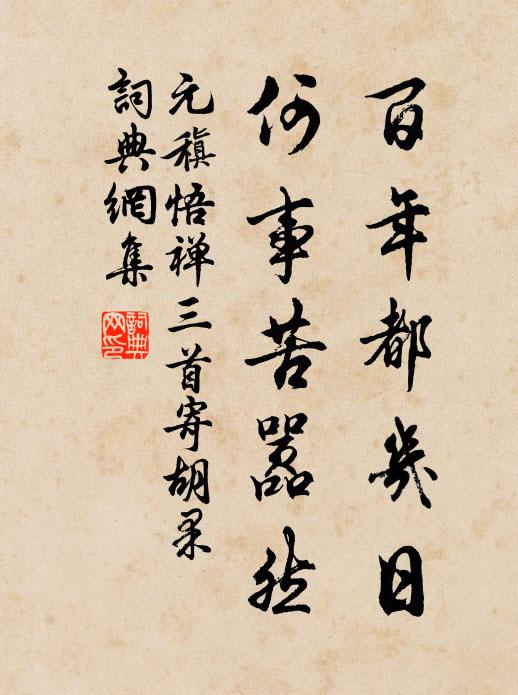 百年都幾日
何事苦囂然
元稹悟禅三首寄胡果
詞典網集
詞典
网印